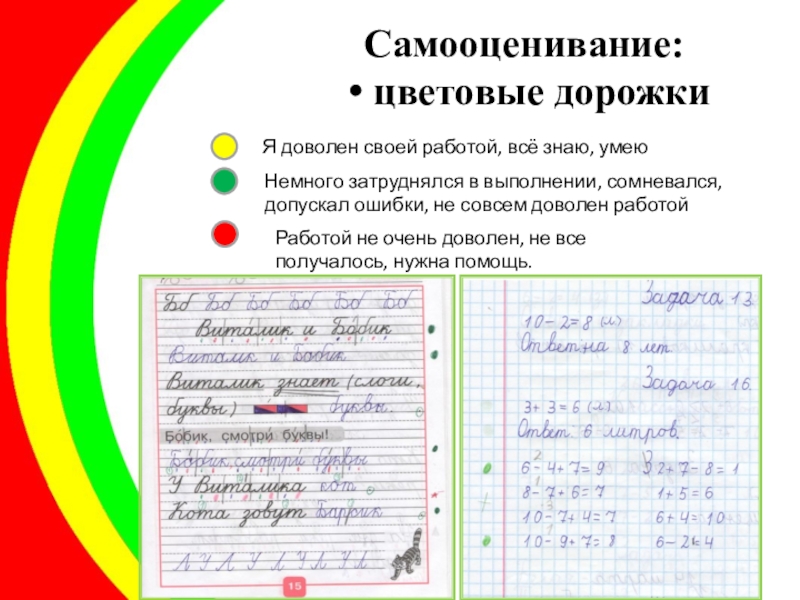 Самооценивание:
• цветовые дорожки
Я доволен своей работой, всё знаю, умею
Немного затруднялся в выполнении, сомневался,
допускал ошибки, не совсем доволен работой
Работой не очень доволен, не все
получалось, нужна помощь.
Бб Бб Бб Бб Бб Бб
Виталик и Бобик
Виталик и Бобик
Виталик знает (слоги,
буквы) буквы.
Бобик, смотри буквы!
Бобик, смотри буквы
У Виталика кот
Кота зовут Баррик
Л У Л У Л У Л У Л
15
Задача 13.
10-2=8 (л)
Ответ: на 8 лет.
Задача 16.
3+3=6 (л)
Ответ. 6 литров.
6-4+7=9 2+7-8=1
8-7+6=7 1+5=6
10-7+4=7 6+4=10
10-9+7=8 6-2=4